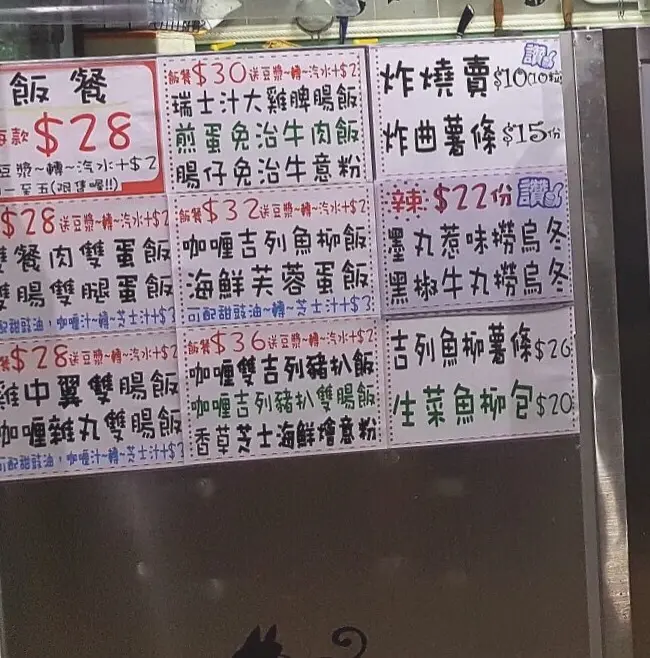 飯餐
每款$28
豆漿~轉~汽水+$2
一至五(限售喔!!)
$28送豆漿~轉~汽水+$2
雙餐肉雙蛋飯
雙腸雙腿蛋飯
可配甜豉油,咖喱汁~轉~芝士汁+$3
餐$28送豆漿~轉~汽水+$2
雞中翼雙腸飯
咖喱雜丸雙腸飯
可配甜豉油,咖喱汁~轉~芝士汁+$3
飯餐$30送豆漿~轉~汽水+$2
瑞士汁大雞脾腸飯
煎蛋免治牛肉飯
腸仔免治牛意粉
飯餐$32送豆漿~轉~汽水+$2
咖喱吉列魚柳飯
海鮮芙蓉蛋飯
可配甜豉油~轉~芝士汁+$3
飯餐$36送豆漿~轉~汽水+$2
咖喱雙吉列豬扒飯
咖喱吉列豬扒雙腸飯
香草芝士海鮮燴意粉
讚
炸燒賣$10(10粒)
炸曲薯條$15份
辣:$22份 讚
墨丸惹味撈烏冬
黑椒牛丸撈烏冬
吉列魚柳薯條$26
生菜魚柳包$20